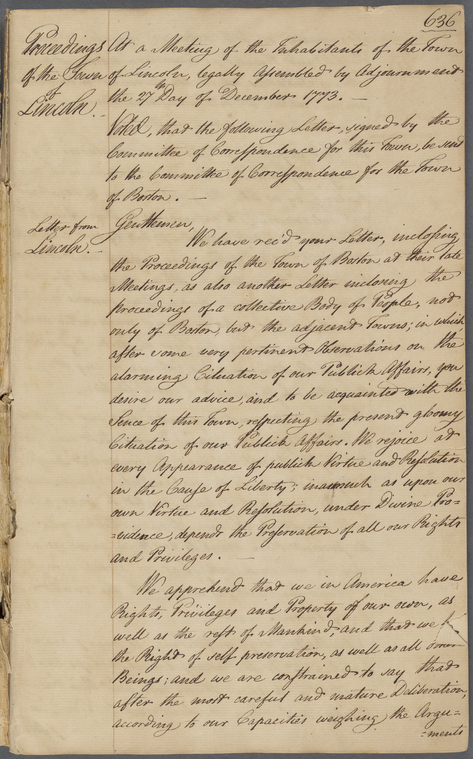 636
Proceedings
of the Town
of
Lincoln.—
At a Meeting of the Inhabitants of the Town
of Lincoln, legally assembled by Adjournment
the 27th Day of December 1773.—
Voted, that the following Letter, signed by the
Committee of Correspondence for this Town, be sent
to the Committee of Correspondence for the Town
of Boston.—
Letter from
Lincoln.—
Gentlemen,
We have rec'd your Letter, inclosing
the Proceedings of the Town of Boston at their late
Meetings, as also another Letter incloseing the
proceedings of a collective Body of People, not
only of Boston, but the adjacent Towns; in which
after some very pertinent Observations on the
alarming Cituation of our Publick Affairs, you
desire our advice, and to be acquainted with the
Sence of this Town, respecting the present gloomy
Cituation of our Publick Affairs. We rejoice at
every Appearance of publick Virtue and Resolution
in the Cause of Liberty; inasmuch as upon our
own Virtue and Resolution, under Divine Pro-
=vidence, depends the Preservation of all our Rights
and Privileges.—
We apprehend that we in America have
Rights, Privileges and Property of our own, as
well as the rest of Mankind, and that we
the Right of self preservation, as well as all other
Beings; and we are constrained to say that
after the most careful and mature Deliberation,
according to our Capacities weighing the Argu-
=ments